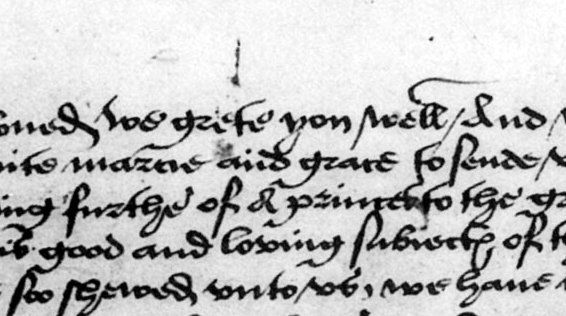 oued we grete you well / And
ite marcie and grace to sende
ing furthe of A princes to the gr
good and loving subiectꝭ of t
soo shewed vnto vs, we haue